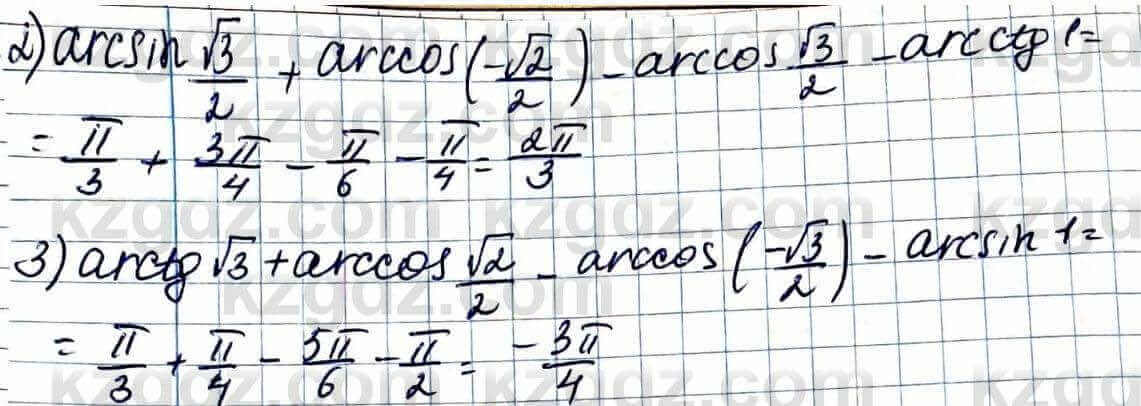 2) arcsin √3/2 + arccos(-√2/2) - arccos √3/2 - arcctg 1=
= π/3 + 3π/4 - π/6 - π/4 = 2π/3
3) arctg √3 + arccos √2/2 - arccos (-√3/2) - arcsin 1=
= π/3 + π/4 - 5π/6 - π/2 = -3π/4
kzgdz.com